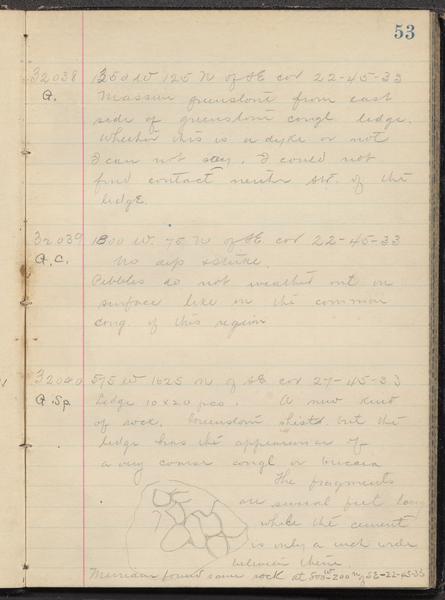 53
32038 1350 W 125 N of SE cor 22-45-33
A. Massive greenstone from east
side of greenstone congl ledge.
Whether this is a dyke or not
I can not say. I could not
find contact neither SW. of the
ledge.
32039 1800 W. 75 N of SE cor 22-45-33
A.C. No dip & strike.
Pebbles do not weather out on
surface like in the common
cong. of this region
32040 575 W 1625 N of SE cor 27-45-33
A.Sp. Ledge 10 x 20 pcs. A new kind
of rock. Greenstone shist but the
ledge has the appearance of
a very coarse congl or breccia
The fragments
are several feet long
while the cement
is only a inch wide
between them
Merriam found same rock at 500 W-200 N of SE-22-45-33